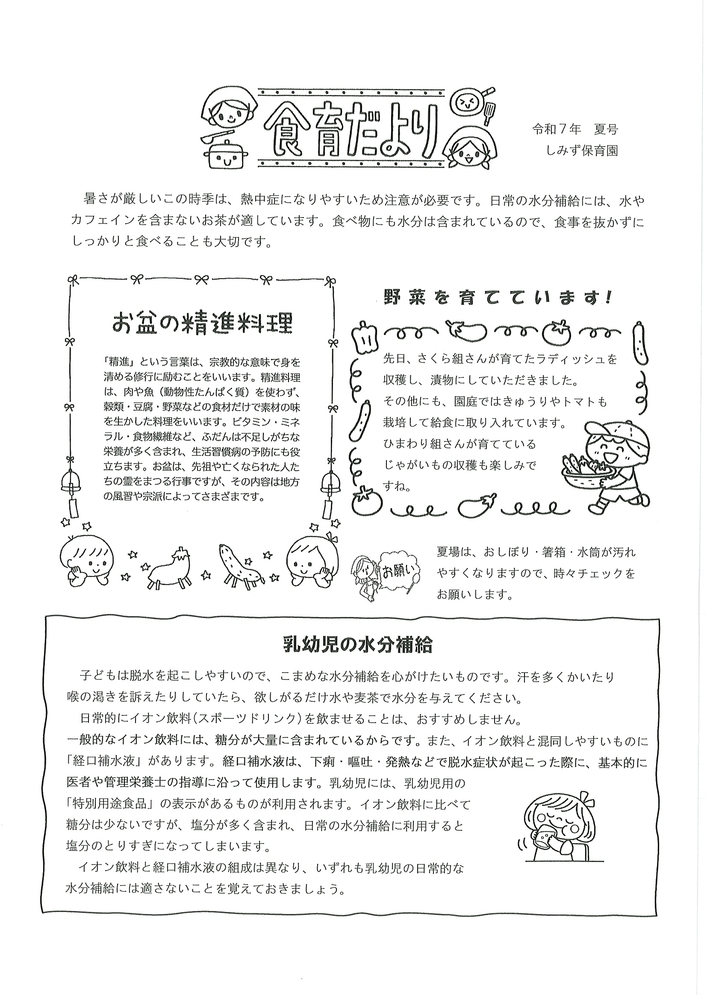 食育だより
令和７年　夏号
しみず保育園
　暑さが厳しいこの時季は、熱中症になりやすいため注意が必要です。日常の水分補給には、水や
カフェインを含まないお茶が適しています。食べ物にも水分は含まれているので、食事を抜かずに
しっかりと食べることも大切です。
お盆の精進料理
「精進」という言葉は、宗教的な意味で身を
清める修行に励むことをいいます。精進料理
は、肉や魚（動物性たんぱく質）を使わず、
穀類・豆腐・野菜などの食材だけで素材の味
を生かした料理をいいます。ビタミン・ミネ
ラル・食物繊維など、ふだんは不足しがちな
栄養が多く含まれ、生活習慣病の予防にも役
立ちます。お盆は、先祖や亡くなられた人た
ちの霊をまつる行事ですが、その内容は地方
の風習や宗派によってさまざまです。
野菜を育てています！
先日、さくら組さんが育てたラディッシュを
収穫し、漬物にしていただきました。
その他にも、園庭ではきゅうりやトマトも
栽培して給食に取り入れています。
ひまわり組さんが育てている
じゃがいもの収穫も楽しみで
すね。
お願い
夏場は、おしぼり・箸箱・水筒が汚れ
やすくなりますので、時々チェックを
お願いします。
乳幼児の水分補給
　子どもは脱水を起こしやすいので、こまめな水分補給を心がけたいものです。汗を多くかいたり
喉の渇きを訴えたりしていたら、欲しがるだけ水や麦茶で水分を与えてください。
　日常的にイオン飲料(スポーツドリンク)を飲ませることは、おすすめしません。
一般的なイオン飲料には、糖分が大量に含まれているからです。また、イオン飲料と混同しやすいものに
「経口補水液」があります。経口補水液は、下痢・嘔吐・発熱などで脱水症状が起こった際に、基本的に
医者や管理栄養士の指導に沿って使用します。乳幼児には、乳幼児用の
「特別用途食品」の表示があるものが利用されます。イオン飲料に比べて
糖分は少ないですが、塩分が多く含まれ、日常の水分補給に利用すると
塩分のとりすぎになってしまいます。
　イオン飲料と経口補水液の組成は異なり、いずれも乳幼児の日常的な
水分補給には適さないことを覚えておきましょう。